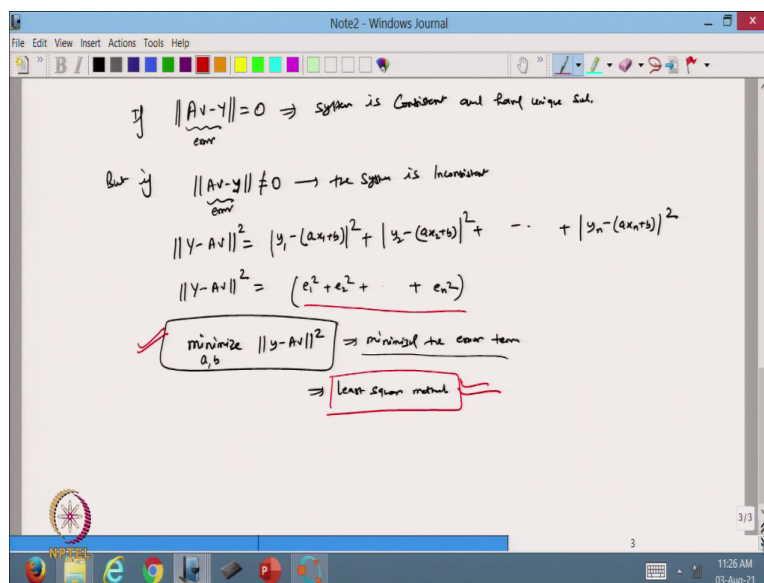 Note2 - Windows Journal
File Edit View Insert Actions Tools Help
If ||Av-Y|| = 0 ⇒ system is Consistent and have unique Sol.
error
But if ||Av-y|| ≠ 0 → the system is Inconsistent
error
||Y-Av||² = |y₁-(ax₁+b)|² + |y₂-(ax₂+b)|² + - - + |yₙ-(axₙ+b)|²
||Y-Av||² = (e₁² + e₂² + · · + eₙ²)
minimize ||y-Av||² ⇒ minimized the error term
a,b
⇒ least square method
3/3
3
NPTEL
11:26 AM
03-Aug-21